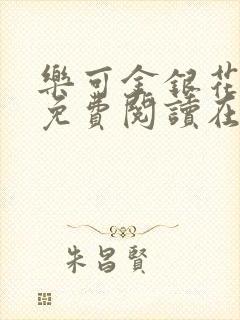 樂可金銀花
免費閱讀在
朱昌賢